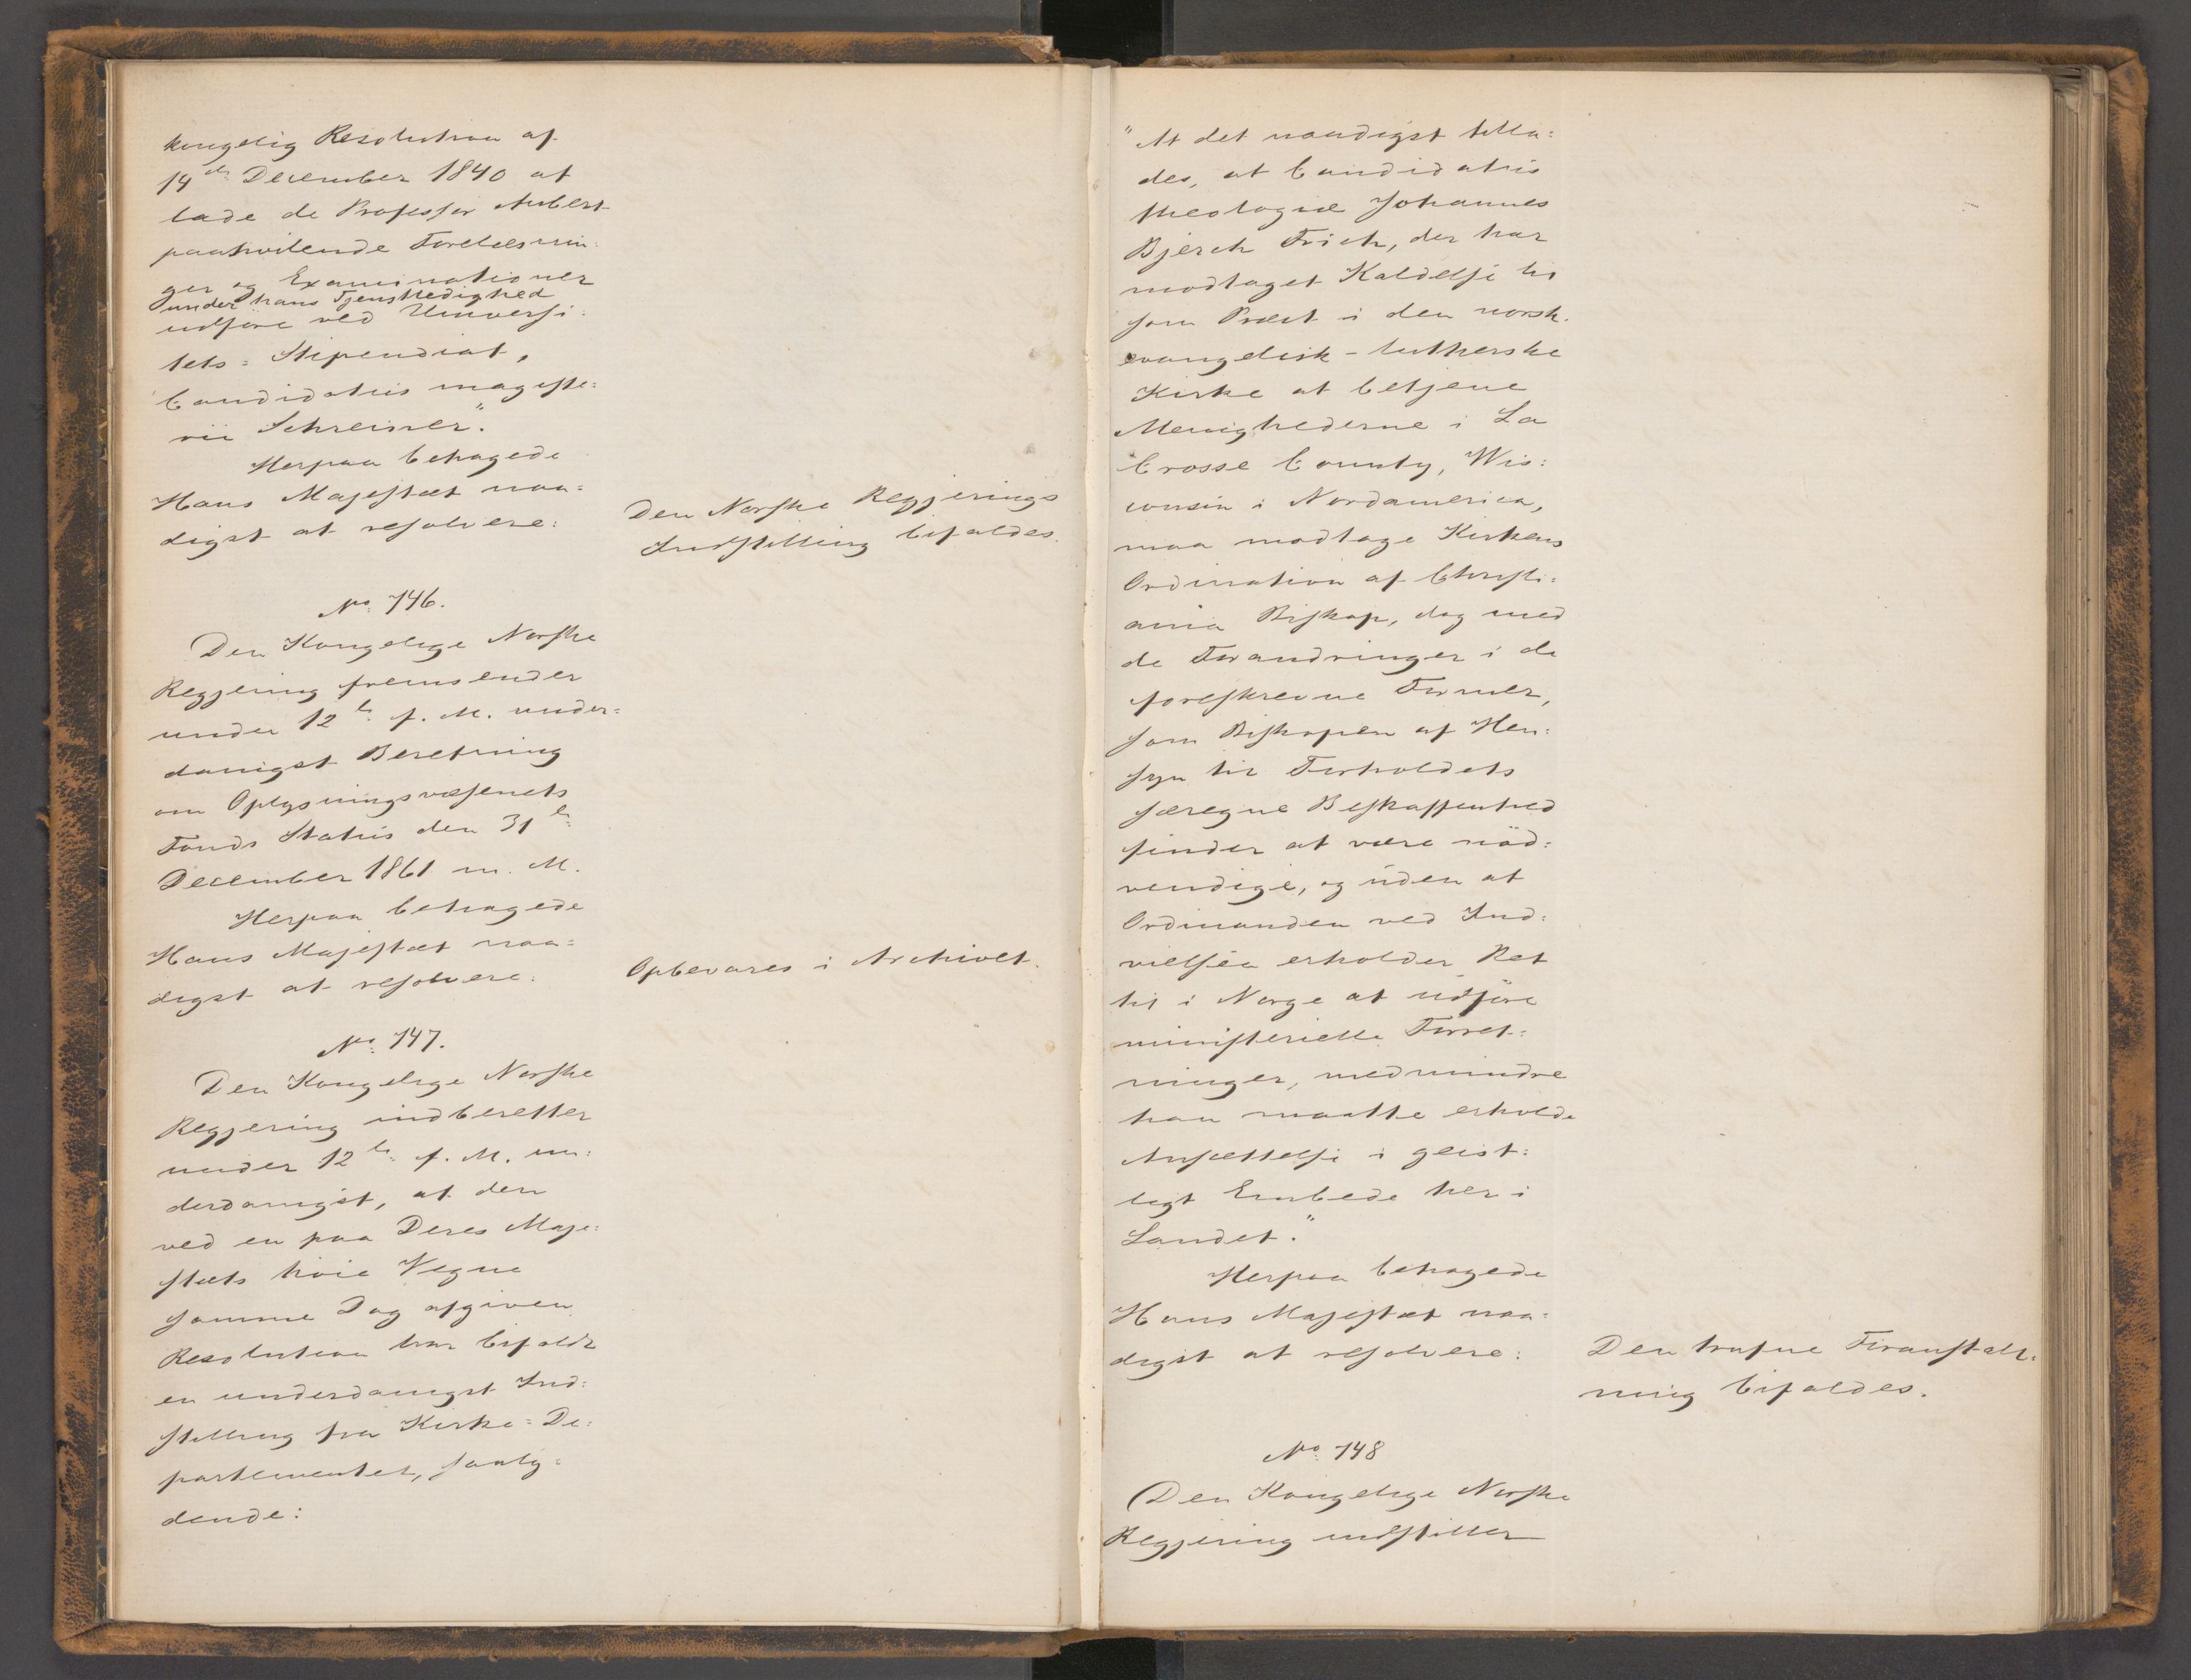 kongelig Resolution af
14de December 1840 at
lade de Professor Aubert
paahvilende Forelæsnin-
ger og Examinationer
under hans Tjenstledighed
udføre ved Universi-
tets=Stipendiat,
Candidatus magiste-
rii Schreiner."
Herpaa behagede
Hans Majestæt naa-
digst at resolvere:
Den Norske Regjerings
Indstilling bifaldes.
No 746.
Den Kongelige Norske
Regjering fremsender
under 12te f. M. under-
danigst Beretning
om Oplysningsvæsenets
Fonds Status den 31te
December 1861 m. M.
Herpaa behagede
Hans Majestæt naa-
digst at resolvere:
Opbevares i Archivet.
No 747.
Den Kongelige Norske
Regjering indberetter
under 12te f. M. un-
derdanigst, at den
ved en paa Deres Maje-
stæts høie Vegne
samme Dag afgiven
Resolution har bifaldt
en underdanigst Ind-
stilling fra Kirke=De-
partementet, saaly-
dende:
"At det naadigst tilla-
des, at Candidatus
theologiæ Johannes
Bjerch Frich, der har
modtaget Kaldelse til
som Præst i den norsk-
evangelisk-lutherske
Kirke at betjene
Menighederne i La
Crosse County, Wis-
consin i Nordamerica,
maa modtage Kirkens
Ordination af Christi-
ania Biskop, dog med
de Forandringer i de
foreskrevne Former,
som Biskopen af Hen-
syn til Forholdets
særegne Beskaffenhed
finder at være nød-
vendige, og uden at
Ordinanden ved Ind-
vielsen erholder Ret
til i Norge at udføre
ministerielle Forret-
ninger, medmindre
han maatte erholde
Ansættelse i geist-
ligt Embede her i
Landet."
Herpaa behagede
Hans Majestæt naa-
digst at resolvere:
Den trufne Foranstalt-
ning bifaldes.
No 748
Den Kongelige Norske
Regjering indstiller